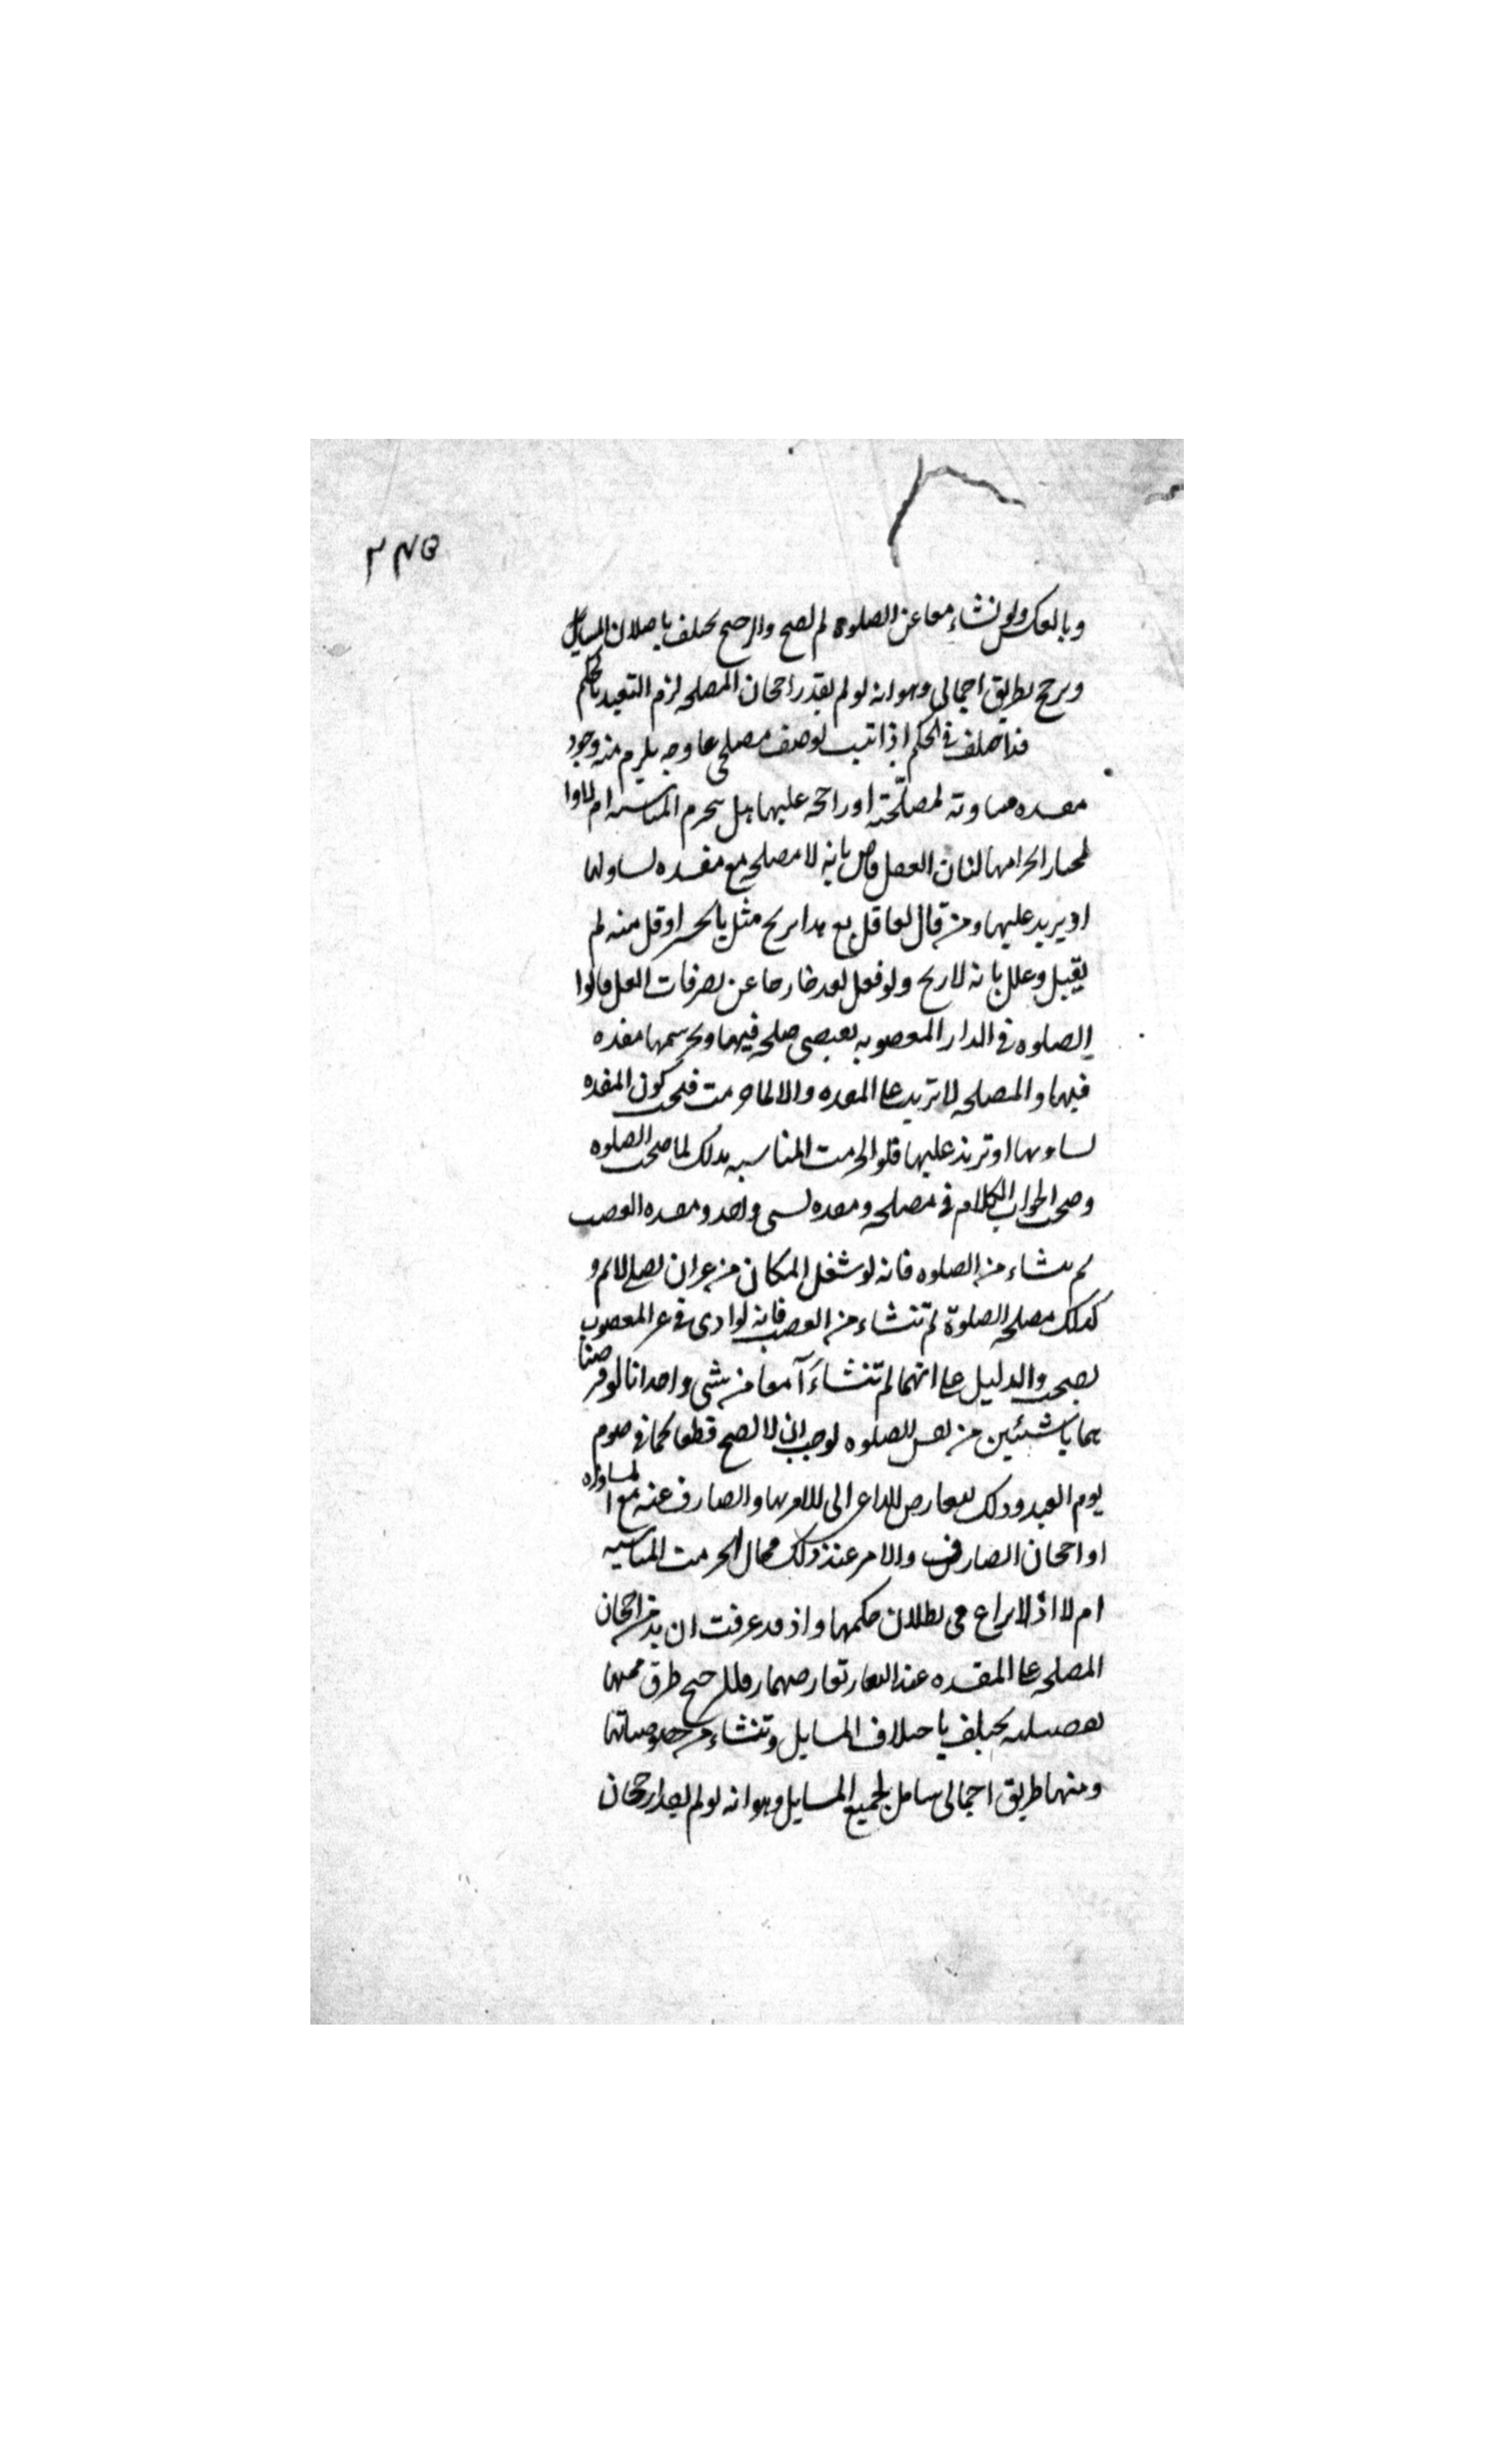 ٢٤٥
وبالعكس ولو نشاء معا عن الصلوة لم لصح والرجح يحتلف باصلان المسايل
ويرجح بطريق اجمالى وهو انه لو لم يقدر راجحان المصلحه لزم التعبد بالحكم
قد اختلف فى الحكم اذا ثبت لوصف مصلحى على وجه يلزم منه وجود
مفسده مساوته لمصلحته او راجحه عليها هل يحرم المناسبه ام لا
المختار الحرامها لنا ان العقل قاض بانه لا مصلحه مع مفسده لساولها
او يريد عليها ومن قال لعاقل بع هذا بربح مثل ما يخسر او اقل منه لم
يقبل وعلل بانه لا ربح ولو فعل لعد خارجا عن تصرفات العقل قالوا
الصلوه فى الدار المغصوبه تقتضى مصلحه فيها وتحريمها مفسده
فيها والمصلحه لا تزيد على المفسده والا لما حرمت فيجب كون المفسده
لساويها او تزيد عليها فلو الحرمت المناسبه بذلك لما صحت الصلوه
وصحت الجواب الكلام فى مصلحه ومفسده لشى واحد ومفسده الغصب
لم ينشاء من الصلوه فانه لو شغل المكان من غير ان يصلى لاثم و
كذلك مصلحه الصلوة لم تنشاء من الغصب فانه لو ادى فى غير المغصوب
لصحت والدليل على انهما لم تنشاءآ معا من شى واحد انا لو فرضنا
هما ناشئين من نفس الصلوه لوجب ان لا تصح قطعا كما فى صوم
يوم العيد وذلك لتعارض الداعى الى الامر بها والصارف عنه مع المساواه
او احجان الصارف والامر عند ذلك محال الحرمت المناسبه
ام لا اذ لا نزاع فى بطلان حكمها واذ قد عرفت ان بد من راجحان
المصلحه على المفسده عند تعارضهما فللترجيح طرق منها
تفصيليه يختلف باختلاف المسايل وتنشاء من خصوصياتها
ومنها طريق اجمالى شامل لجميع المسايل وهو انه لو لم يقدر رجحان